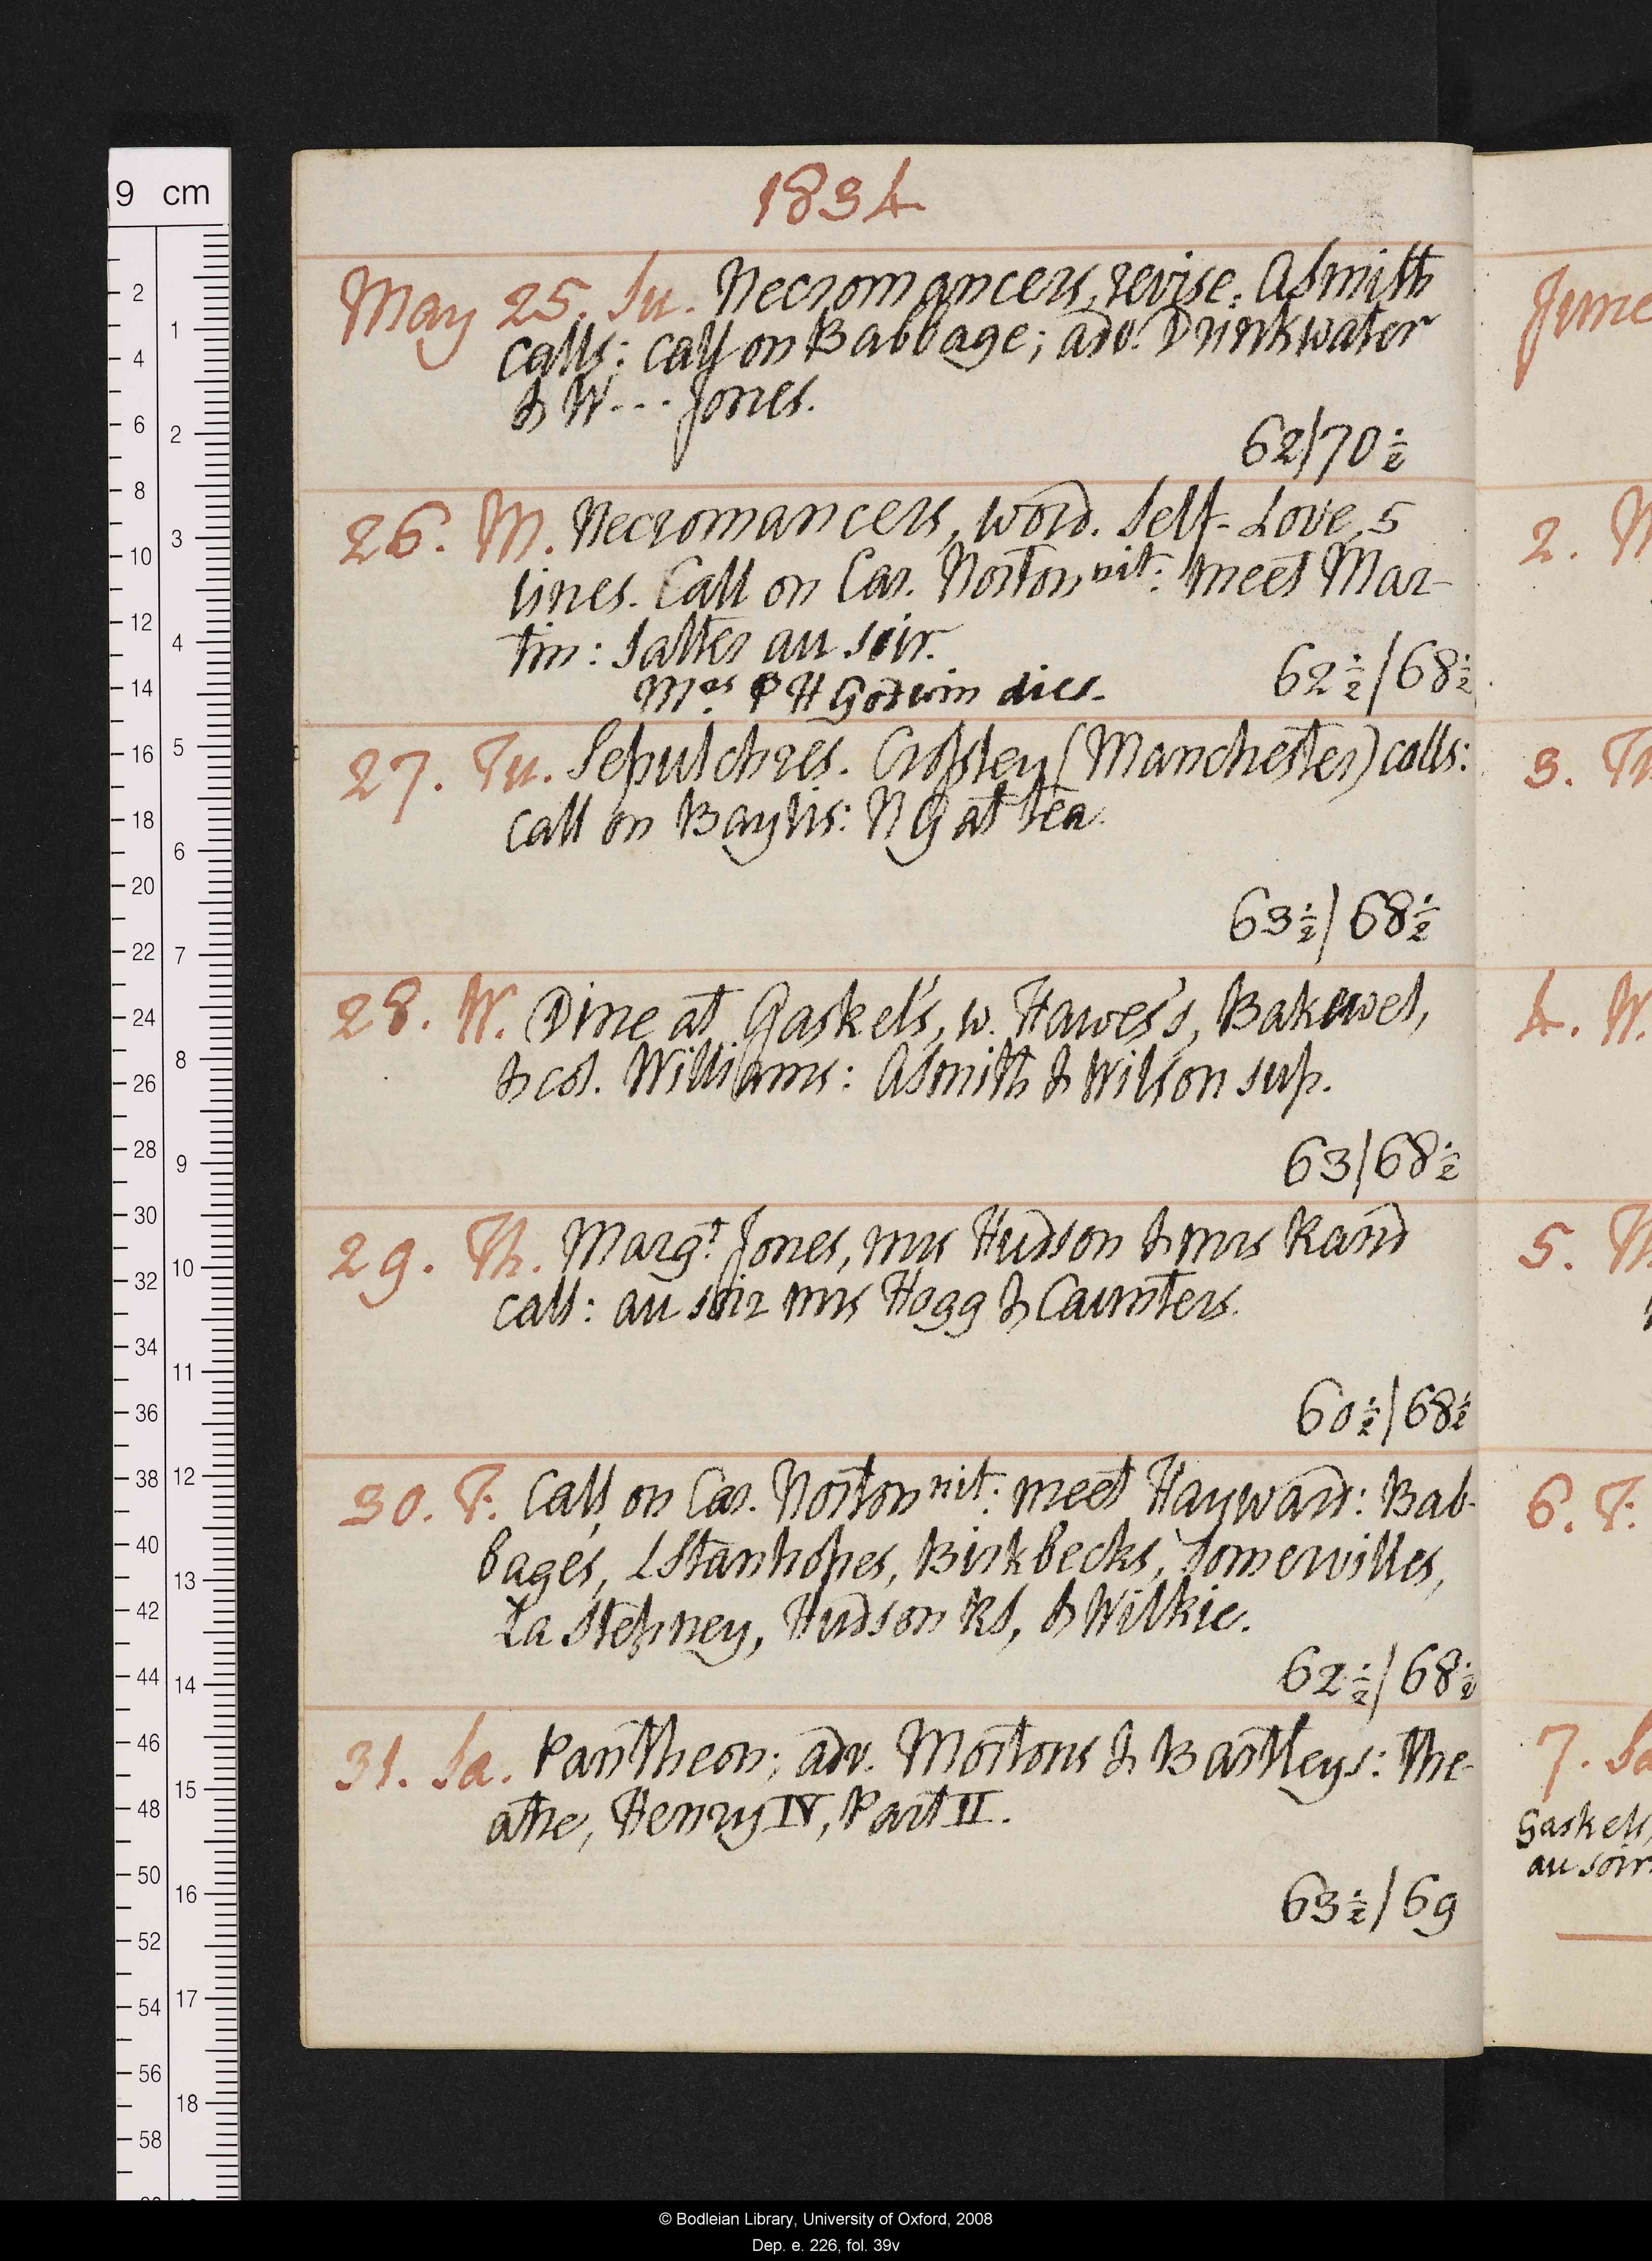 1834
May 25. Su. Necromancers, revise. Asmith
calls: call on Babbage; adv. Drinkwater
& W--- Jones.
62/70½
26. M. Necromancers, word. Self-Love, 5
lines. Call on Car. Norton nit: meet Mar-
tin: Salter au soir.
Mrs P H Godwin dies.
62½/68½
27. Tu. Sepulchres. Crossley (Manchester) calls:
call on Baylis: N G at tea.
63½/68½
28. W. Dine at Gaskel's, w. Hawes's, Bakewel,
& col. Williams: Asmith & Wilson sup.
63/68½
29. Th. Margt. Jones, mrs Hudson & mrs Rand
call: au soir mrs Hogg & Caunters.
60½/68½
30. F. Call on Car. Norton nit: meet Hayward: Bab-
bage's, LStanhopes, Birkbecks, Somervilles,
La Stepney, Hudson Rs, & Wilkie.
62½/68½
31. Sa. Pantheon; adv. Mortons & Bartleys: The-
atre, Henry IV, Part II.
63½/69
June
2. M
3. T
4. W.
5. Th
6. F.
7. Sa
Gaskells,
au soir
9 cm
2 4 6 8 10 12 14 16 18 20 22 24 26 28 30 32 34 36 38 40 42 44 46 48 50 52 54 56 58
1 2 3 4 5 6 7 8 9 10 11 12 13 14 15 16 17 18
© Bodleian Library, University of Oxford, 2008
Dep. e. 226, fol. 39v